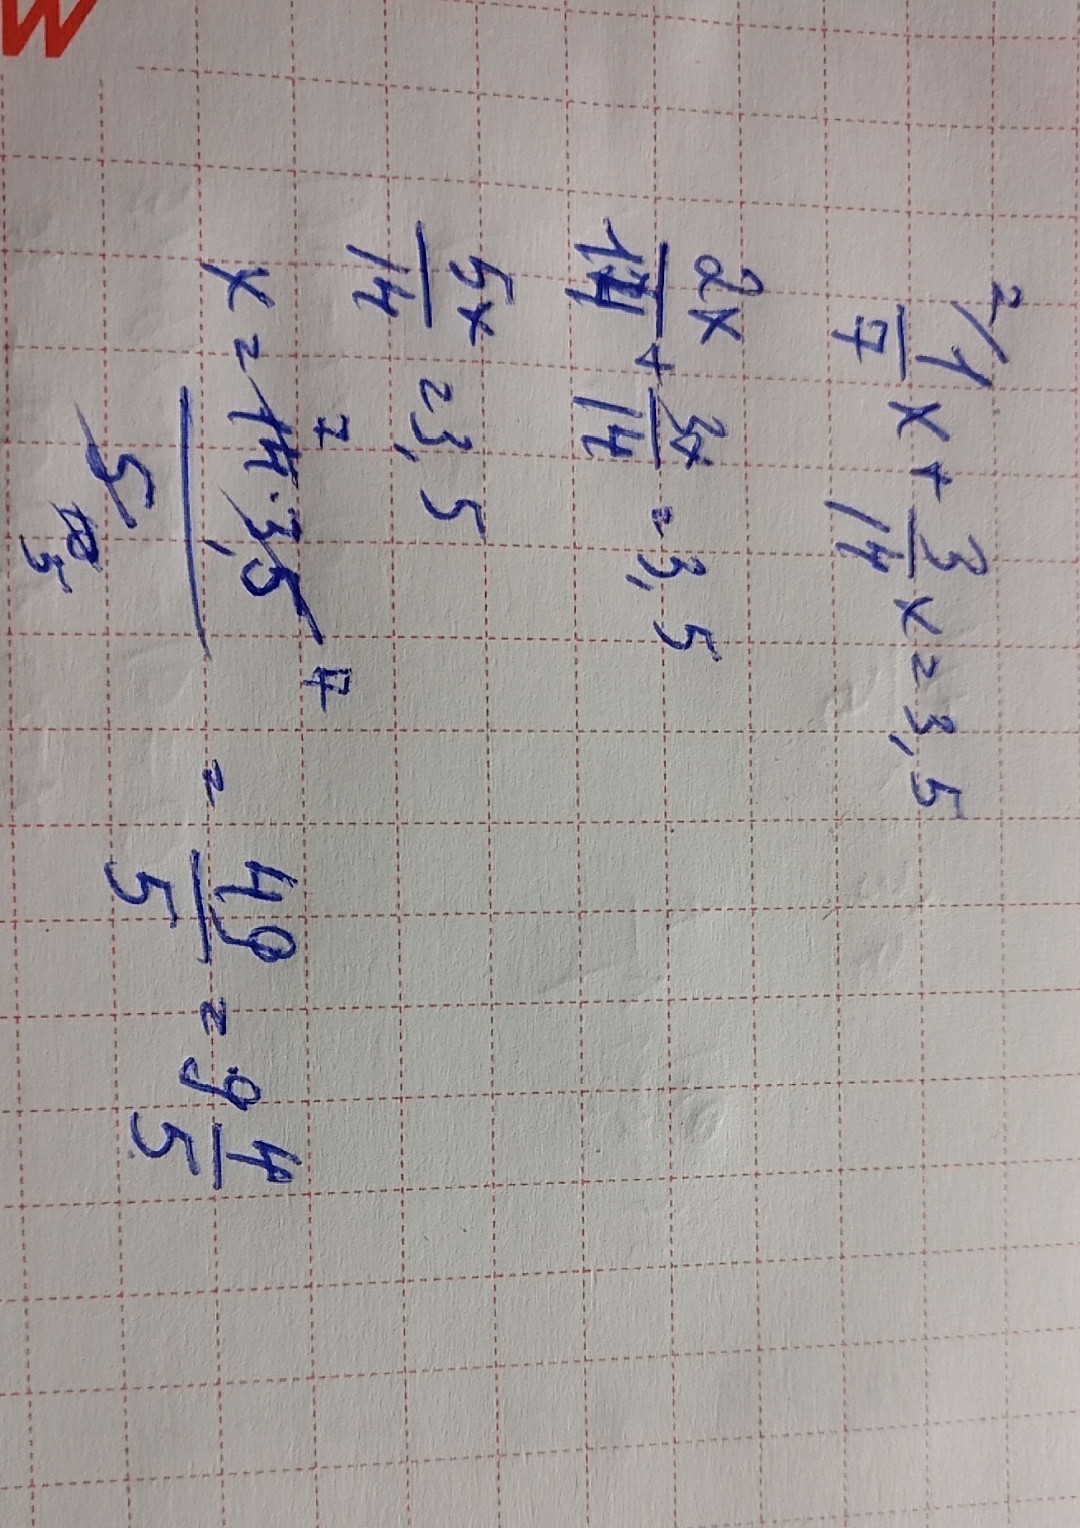 W
2/ 1/7 x + 3/14 x = 3,5
2x/14 + 3x/14 = 3,5
5x/14 = 3,5
x = 14 · 3,5 / 5 = 49/5 = 9 4/5
7 7
10 5